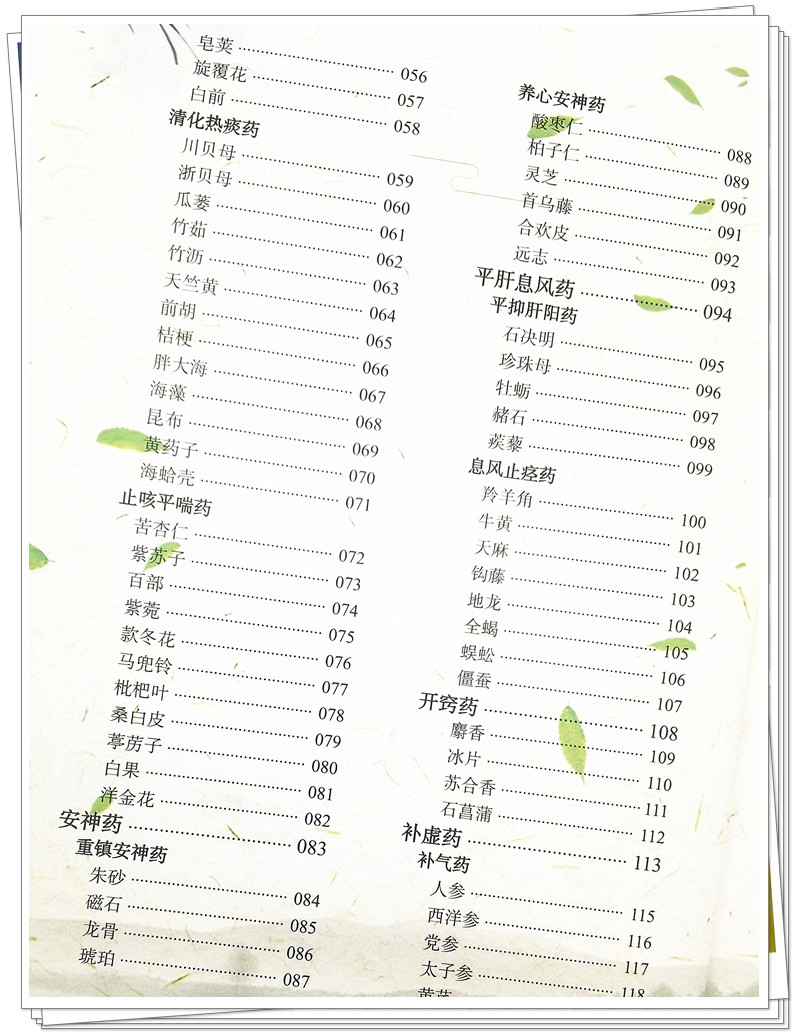 皂荚 056
旋覆花 057
白前 058
清化热痰药
川贝母 059
浙贝母 060
瓜蒌 061
竹茹 062
竹沥 063
天竺黄 064
前胡 065
桔梗 066
胖大海 067
海藻 068
昆布 069
黄药子 070
海蛤壳 071
止咳平喘药
苦杏仁 072
紫苏子 073
百部 074
紫菀 075
款冬花 076
马兜铃 077
枇杷叶 078
桑白皮 079
葶苈子 080
白果 081
洋金花 082
安神药 083
重镇安神药
朱砂 084
磁石 085
龙骨 086
琥珀 087
养心安神药
酸枣仁 088
柏子仁 089
灵芝 090
首乌藤 091
合欢皮 092
远志 093
平肝息风药 094
平抑肝阳药
石决明 095
珍珠母 096
牡蛎 097
赭石 098
蒺藜 099
息风止痉药
羚羊角 100
牛黄 101
天麻 102
钩藤 103
地龙 104
全蝎 105
蜈蚣 106
僵蚕 107
开窍药 108
麝香 109
冰片 110
苏合香 111
石菖蒲 112
补虚药 113
补气药
人参 115
西洋参 116
党参 117
太子参 118